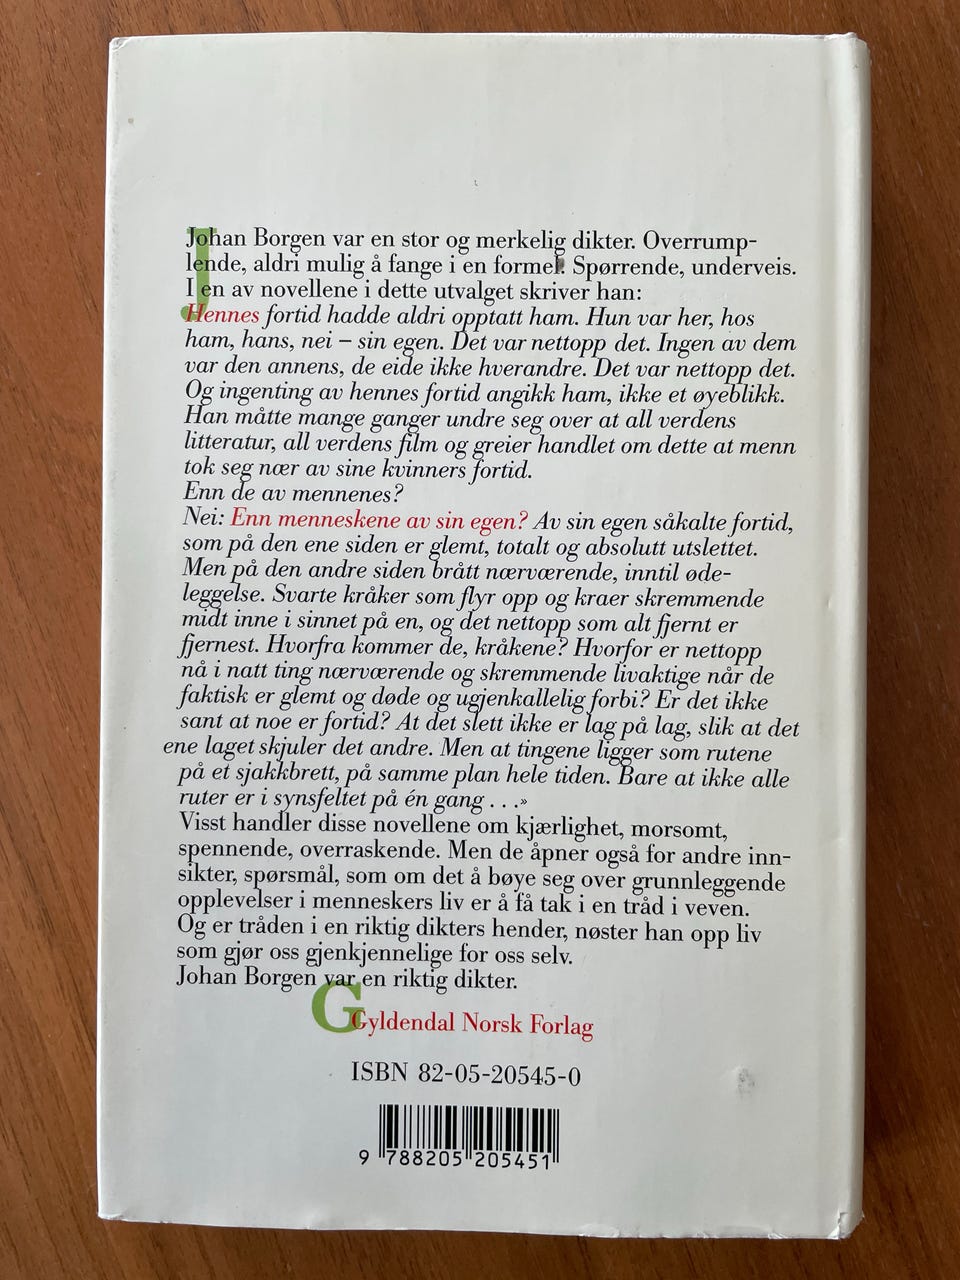 Johan Borgen var en stor og merkelig dikter. Overrump-
lende, aldri mulig å fange i en formel. Spørrende, underveis.
I en av novellene i dette utvalget skriver han:
Hennes fortid hadde aldri opptatt ham. Hun var her, hos
ham, hans, nei – sin egen. Det var nettopp det. Ingen av dem
var den annens, de eide ikke hverandre. Det var nettopp det.
Og ingenting av hennes fortid angikk ham, ikke et øyeblikk.
Han måtte mange ganger undre seg over at all verdens
litteratur, all verdens film og greier handlet om dette at menn
tok seg nær av sine kvinners fortid.
Enn de av mennenes?
Nei: Enn menneskene av sin egen? Av sin egen såkalte fortid,
som på den ene siden er glemt, totalt og absolutt utslettet.
Men på den andre siden brått nærværende, inntil øde-
leggelse. Svarte kråker som flyr opp og kraer skremmende
midt inne i sinnet på en, og det nettopp som alt fjernt er
fjernest. Hvorfra kommer de, kråkene? Hvorfor er nettopp
nå i natt ting nærværende og skremmende livaktige når de
faktisk er glemt og døde og ugjenkallelig forbi? Er det ikke
sant at noe er fortid? At det slett ikke er lag på lag, slik at det
ene laget skjuler det andre. Men at tingene ligger som rutene
på et sjakkbrett, på samme plan hele tiden. Bare at ikke alle
ruter er i synsfeltet på én gang . . .»
Visst handler disse novellene om kjærlighet, morsomt,
spennende, overraskende. Men de åpner også for andre inn-
sikter, spørsmål, som om det å bøye seg over grunnleggende
opplevelser i menneskers liv er å få tak i en tråd i veven.
Og er tråden i en riktig dikters hender, nøster han opp liv
som gjør oss gjenkjennelige for oss selv.
Johan Borgen var en riktig dikter.
Gyldendal Norsk Forlag
ISBN 82-05-20545-0
9 788205 205451